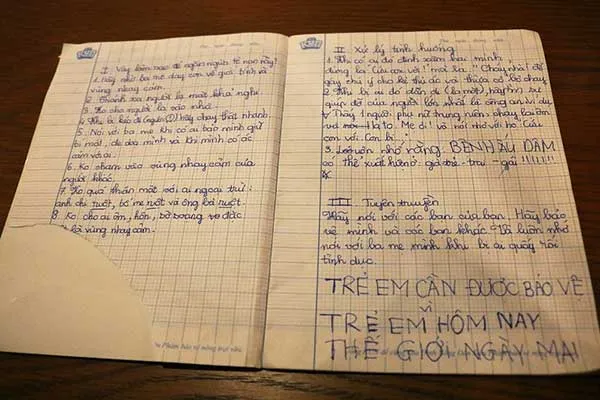 I Vậy làm sao để ngăn ngừa tệ nạn này?
1. Hãy nhờ ba mẹ dạy con về giới tính và
vùng nhạy cảm.
2. Tránh xa người lạ mặt khả nghi.
3. Ko cho người lạ vào nhà.
4. Khi bị kéo đi hãy chạy thật nhanh
5. Nói với ba mẹ khi có ai bảo mình giữ
bí mật, đe doạ mình và khi mình có ác
cảm với ai.
6. Ko chạm vào vùng nhạy cảm của
người khác.
7. Ko quá thân mật với ai ngoại trừ:
anh chị ruột, bố mẹ ruột và ông bà ruột.
8. Ko cho ai ôm, hôn, đặc
là vùng nhạy cảm.
II Xử lý tình huống
1. Khi có ai đó định xâm hại mình
đừng la "Cứu con với" mà la "Cháy nhà" để
gây chú ý cho kẻ thủ ác và thừa cơ bỏ chạy
2. Khi bị ai đó dẫn đi (lạ mặt), hãy tìm sự
giúp đỡ của người lớn nhất là công an. Ví dụ
Thấy 1 người phụ nữ trung niên: chạy lại ôm
và la to. Mẹ ơi! và nói nhỏ với họ: Cứu
con với. Con bị
3. Luôn nhớ rằng. BỆNH ẤU DÂM
có thể xuất hiện ở: già trẻ - trai - gái !!!!!!!
III Tuyên truyền
Hãy nói với các bạn của bạn. Hãy bảo
vệ mình và các bạn khác. Và luôn nhớ
nói với ba mẹ mình khi bị ai quấy rối
tình dục.
TRẺ EM CẦN ĐƯỢC BẢO VỆ
vì
TRẺ EM HÔM NAY
THẾ GIỚI NGÀY MAI